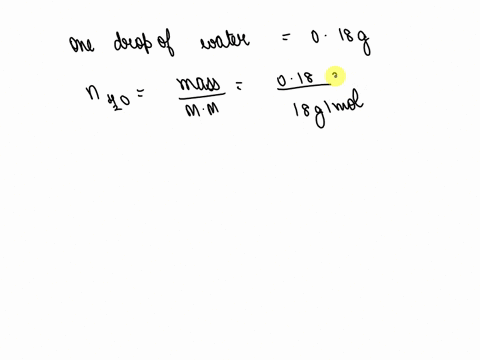 one drop of water = 0.18g
n H2O = mass / M.M = 0.18 / 18g/mol